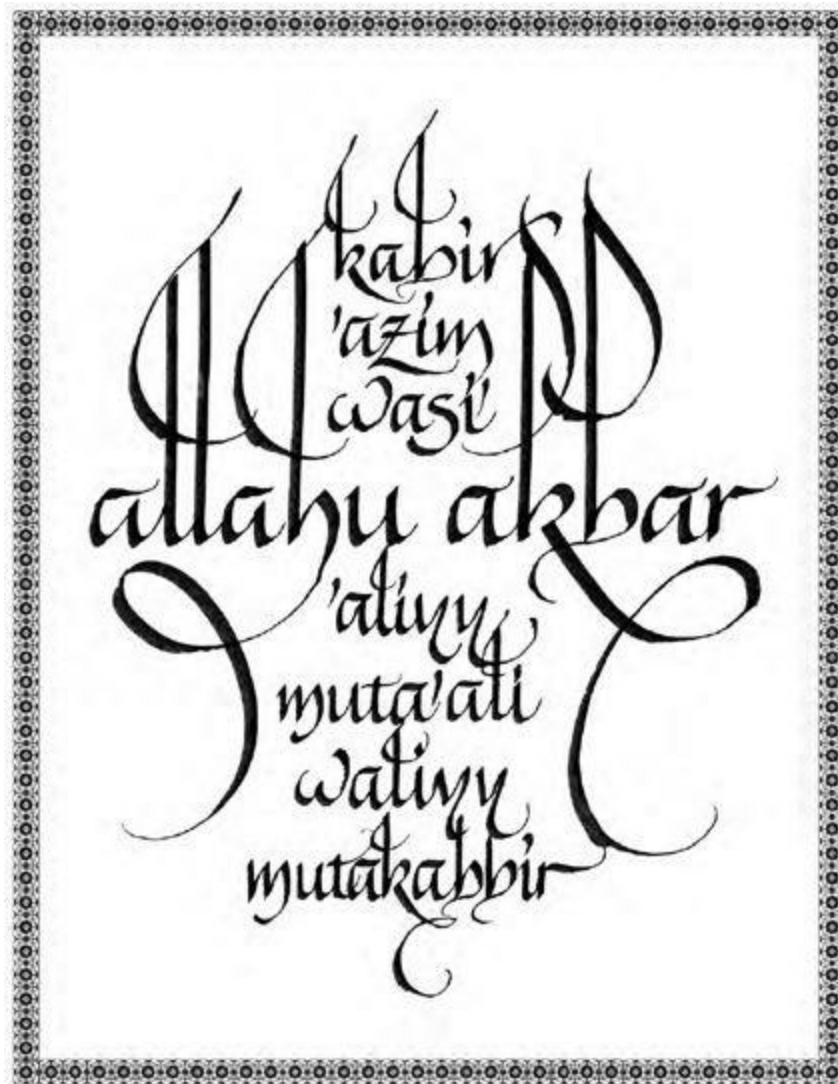 kabir
'azim
wasi'
allahu akbar
'aliyy
muta'ali
waliyy
mutakabbir